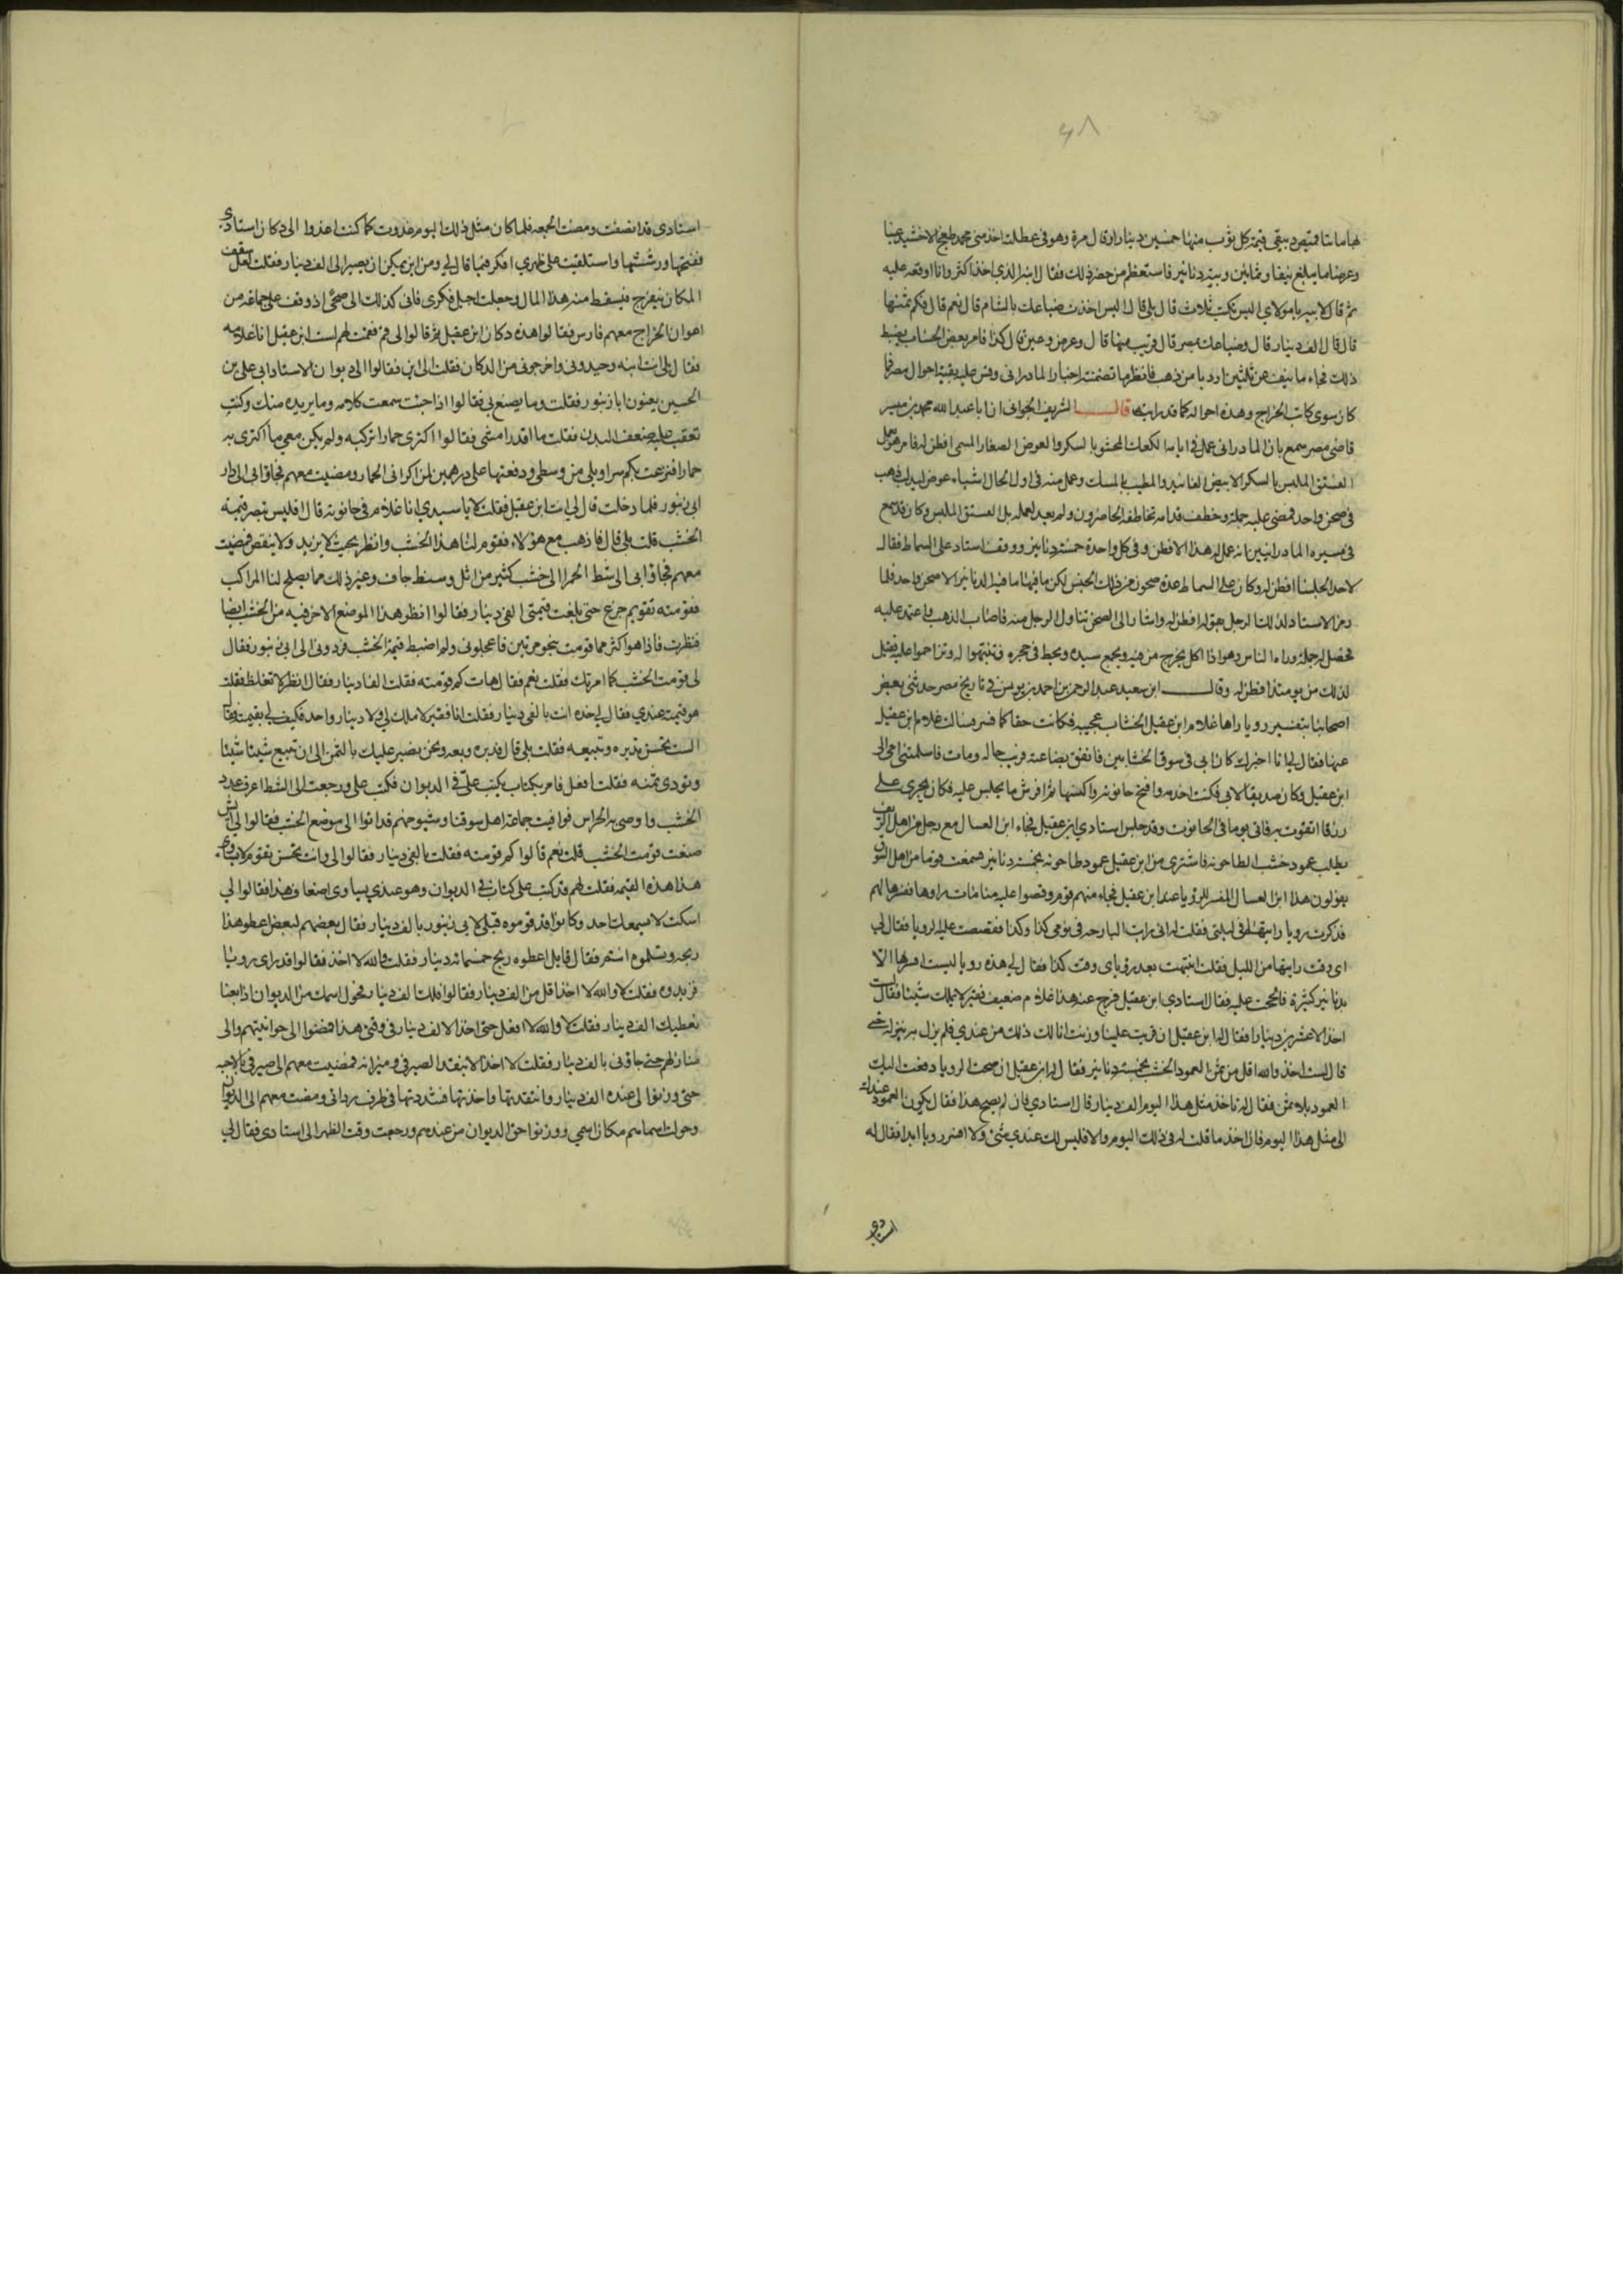 ٤٨
فيها مائتا قميص دبيقي قيمة كل ثوب منها خمسين دينارا وقال مرة وهو في عطلته اخذ مني محمد بن طغج الاخشيد عينا
وعرضا ما يبلغ نيفا وثمانين ويبة دنانير فاستعظم من حضر ذلك فقال ابنه الذي اخذ اكثر وانا اوقعه عليه
ثم قال لابيه يا مولاي اليس نكبت ثلاث قال بلى قال اليس اخذت ضياعك بالشام قال نعم قال فكم ثمنها
قال قال الف دينار قال وضياعك بمصر قال قريب منها قال وعرض وعين قال كذا فامر بعض الحساب بضبط
ذلك فجاء ما ينيف عن ثلثين اردبا من ذهب فانظر ما تضمنته اخبار المادراني وقس عليه بقية احوال مصر فما
كان سوى كاتب الخراج وهذه احواله كما قد رايته قال الشريف الجواني ان ابا عبد الله محمد بن مفسر
قاضي مصر سمع بان المادراني عمل في ايامه الكعك المحشو بالسكر والعرض الصغار المسمى افطن له فامر هو بعمل
الفستق الملبس بالسكر الابيض الفانيد والمطيب بالمسك وعمل منه في اول الحال اشياء عوض لبه لب ذهب
في صحن واحد فمضى عليه جملة وخطف قدامه تخاطفه الحاضرون ولم يعد لعمله بل الفستق الملبس وكان قد سمع
في سيرة المادرانيين انه عمل له هذا الافطن له وفي كل واحدة خمسة دنانير ووقف استاد على السماط فقال
لاحد الجلساء افطن له وكان على السماط عدة صحون من ذلك الجنس لكن ما فيها ما فيه الدنانير الا صحن واحد فلما
رمز الاستاد لذلك الرجل بقوله افطن له واشار الى الصحن تناول الرجل منه فاصاب الذهب فاعتمد عليه
فحصل له جملة ورءاه الناس وهو اذا اكل يخرج من فيه ويجمع بيده ويحط في حجره فتنبهوا له وتزاحموا عليه فقيل
لذلك من يومئذ افطن له وقال ابن سعيد عبد الرحمن بن احمد بن يونس في تاريخ مصر حدثني بعض
اصحابنا بتفسير رويا رآها غلام ابن عقيل الخشاب عجيبه فكانت حقا كما فسرت فسالت غلام ابن عقيل
عنها فقال لي انا اخبرك كان ابي في سوق الخشابين فانفق بضاعته ورثت حاله ومات فاسلمتني امي الى
ابن عقيل وكان صديقا لابي فكنت اخدمه وافتح حانوته واكنسها ثم افرش ما يجلس عليه فكان يجري علي
رزقا اتقوت به فاتي يوما في الحانوت وقد جلس استادي ابن عقيل فجاء ابن العسال مع رجل من اهل الريف
يطلب عمود خشب لطاحونه فاشترى من ابن عقيل عمود طاحونه بخمسة دنانير فسمعت قوما من اهل السوق
يقولون هذا ابن العسال المفسر للرؤيا عند ابن عقيل فجاء منهم قوم وقصوا عليه منامات راوها ففسرها لهم
فذكرت رويا رايتها في ليلتي فقلت له اني رايت البارحه في نومي كذا وكذا فقصصت عليه الرويا فقال لي
اي وقت رايتها من الليل فقلت انتبهت بعد روياي وقت كذا فقال لي هذه رويا لست افسرها الا
بدنانير كثيرة فالححت عليه فقال استادي ابن عقيل فرج عنه هذا غلام ضعيف فقير لا يملك شيئا فقال لست
اخذ الا عشرين دينارا فقال له ابن عقيل ان قربت علينا وزنت انا لك ذلك من عندي فلم يزل به ينزله حتى
قال لست اخذ والله اقل من ثمن العمود الخشب بخمسة دنانير فقال له ابن عقيل ان صحت الرويا دفعت اليك
العمود بلا ثمن فقال له ياخذ مثل هذا اليوم الف دينار قال استادي فان لم يصح هذا فقال يكون العمود عندك
الى مثل هذا اليوم فان اخذ ما قلت له في ذلك اليوم والا فليس لك عندي شيئ ولا افسر رويا ابدا فقال له
استادي
استادي قد انصفت ومضت الجمعه فلما كان مثل ذلك اليوم غدوت كما كنت اغدوا الى دكان استادي
ففتحتها ورششتها واستلقيت على ظهري افكر فيما قال لي ومن اين يمكن ان يصير الي الف دينار فقلت لعل سقف
المكان ينفرج فيسقط منه هذا المال وجعلت اجيل فكري فاني كذلك الى ضحى اذ وقف علي جماعه من
اعوان الخراج معهم فارس فقالوا هذه دكان ابن عقيل ثم قالوا لي قم فقمت لهم لست ابن عقيل انا غلامه
فقال بلى انت ابنه وجبدوني واخرجوني من الدكان فقلت الى اين فقالوا الى ديوان الاستاد ابي علي بن
الحسين يعنون ابا زنبور فقلت وما يصنع بي فقالوا اذا جئت سمعت كلامه وما يريده منك وكنت
تعقب علة ضعف البدن فقلت ما اقدر امشي فقالوا اكتري حمارا تركبه ولم يكن معي ما اكتري به
حمارا فنزعت تكم سراويلي من وسطي ودفعتها على درهمين لمن اكراني الحمار ومضيت معهم فجاوا بي الى دار
ابي زنبور فلما دخلت قال لي انت ابن عقيل فقلت لا يا سيدي انا غلام في حانوته قال افليس تبصر قيمة
الخشب قلت بلى قال فاذهب مع هؤلاء فقوم لنا هذا الخشب وانظر بحيث لا يزيد ولا ينقص فمضيت
معهم فجاوا بي الى شط الحمرا الى خشب كثير من اثل وسنط جاف وغير ذلك مما يصلح لنا المراكب
فقومته تقويم جزع حتى بلغت قيمتي الفي دينار فقالوا انظر هذا الموضع الاخر فيه من الخشب ايضا
فنظرت فاذا هو اكثر مما قومت بنحو مرتين فاعجلوني ولم اضبط قيمة الخشب فردوني الى ابي زنبور فقال
لي قومت الخشب كما امرتك فقلت نعم فقال هات كم قومته فقلت الفا دينار فقال انظر لا تغلط فقلت
هو قيمته عندي فقال لي خذه انت بالفي دينار فقلت انا فقير لا املك لي ولا دينار واحد فكيف لي بقيمته فقال
الست تحسن تدبره وتبيعه فقلت بلى قال فدبره وبعه ونحن نصبر عليك بالثمن الى ان تبيع شيئا شيئا
وتودي ثمنه فقلت افعل فامر بكتاب يكتب علي في الديوان فكتب علي ورجعت الى الشط اعرف عدد
الخشب واوصي به الحراس فوافيت جماعة اهل سوقنا وشيوخهم قد اتوا الى موضع الخشب فقالوا لي اش
صنعت قومت الخشب قلت نعم قالوا كم قومته فقلت بالفي دينار فقالوا لي وانت تحسن تقوم لا يساوي
هذا هذه القيمه فقلت لهم قد كتب علي كتاب في الديوان وهو عندي يساوي اضعاف هذا فقالوا لي
اسكت لا سيمعك احد وكانوا قد قوموه قبلي لابي زنبور بالف دينار فقال بعضهم لبعض اعطوا هذا
ربحه وتسلموه انتم فقال قايل اعطوه ربح خمسمائه دينار فقلت والله لا اخذ فقالوا قد راى رويا
فزيدوه فقلت لا والله لا اخذ اقل من الف دينار فقالوا فلك الف دينار فحول اسمك من الديوان اذا بعنا
نعطيك الف دينار فقلت لا والله لا افعل حتى اخذ الالف دينار في وقتي هذا فمضوا الى حوانيتهم والى
منازلهم حتى جاوني بالف دينار فقلت لا اخذ الا بنقد الصيرفي وميزانه فمضيت معهم الى صيرفي الناحيه
حتى وزنوا لي عنده الف دينار وانتقدتها واخذتها فشددتها في طرف رداتي ومضيت معهم الى الديوان
وحولت اسماهم مكان اسمي ووزنوا حق الديوان من عندهم ورجعت وقت الظهر الى استادي فقال لي